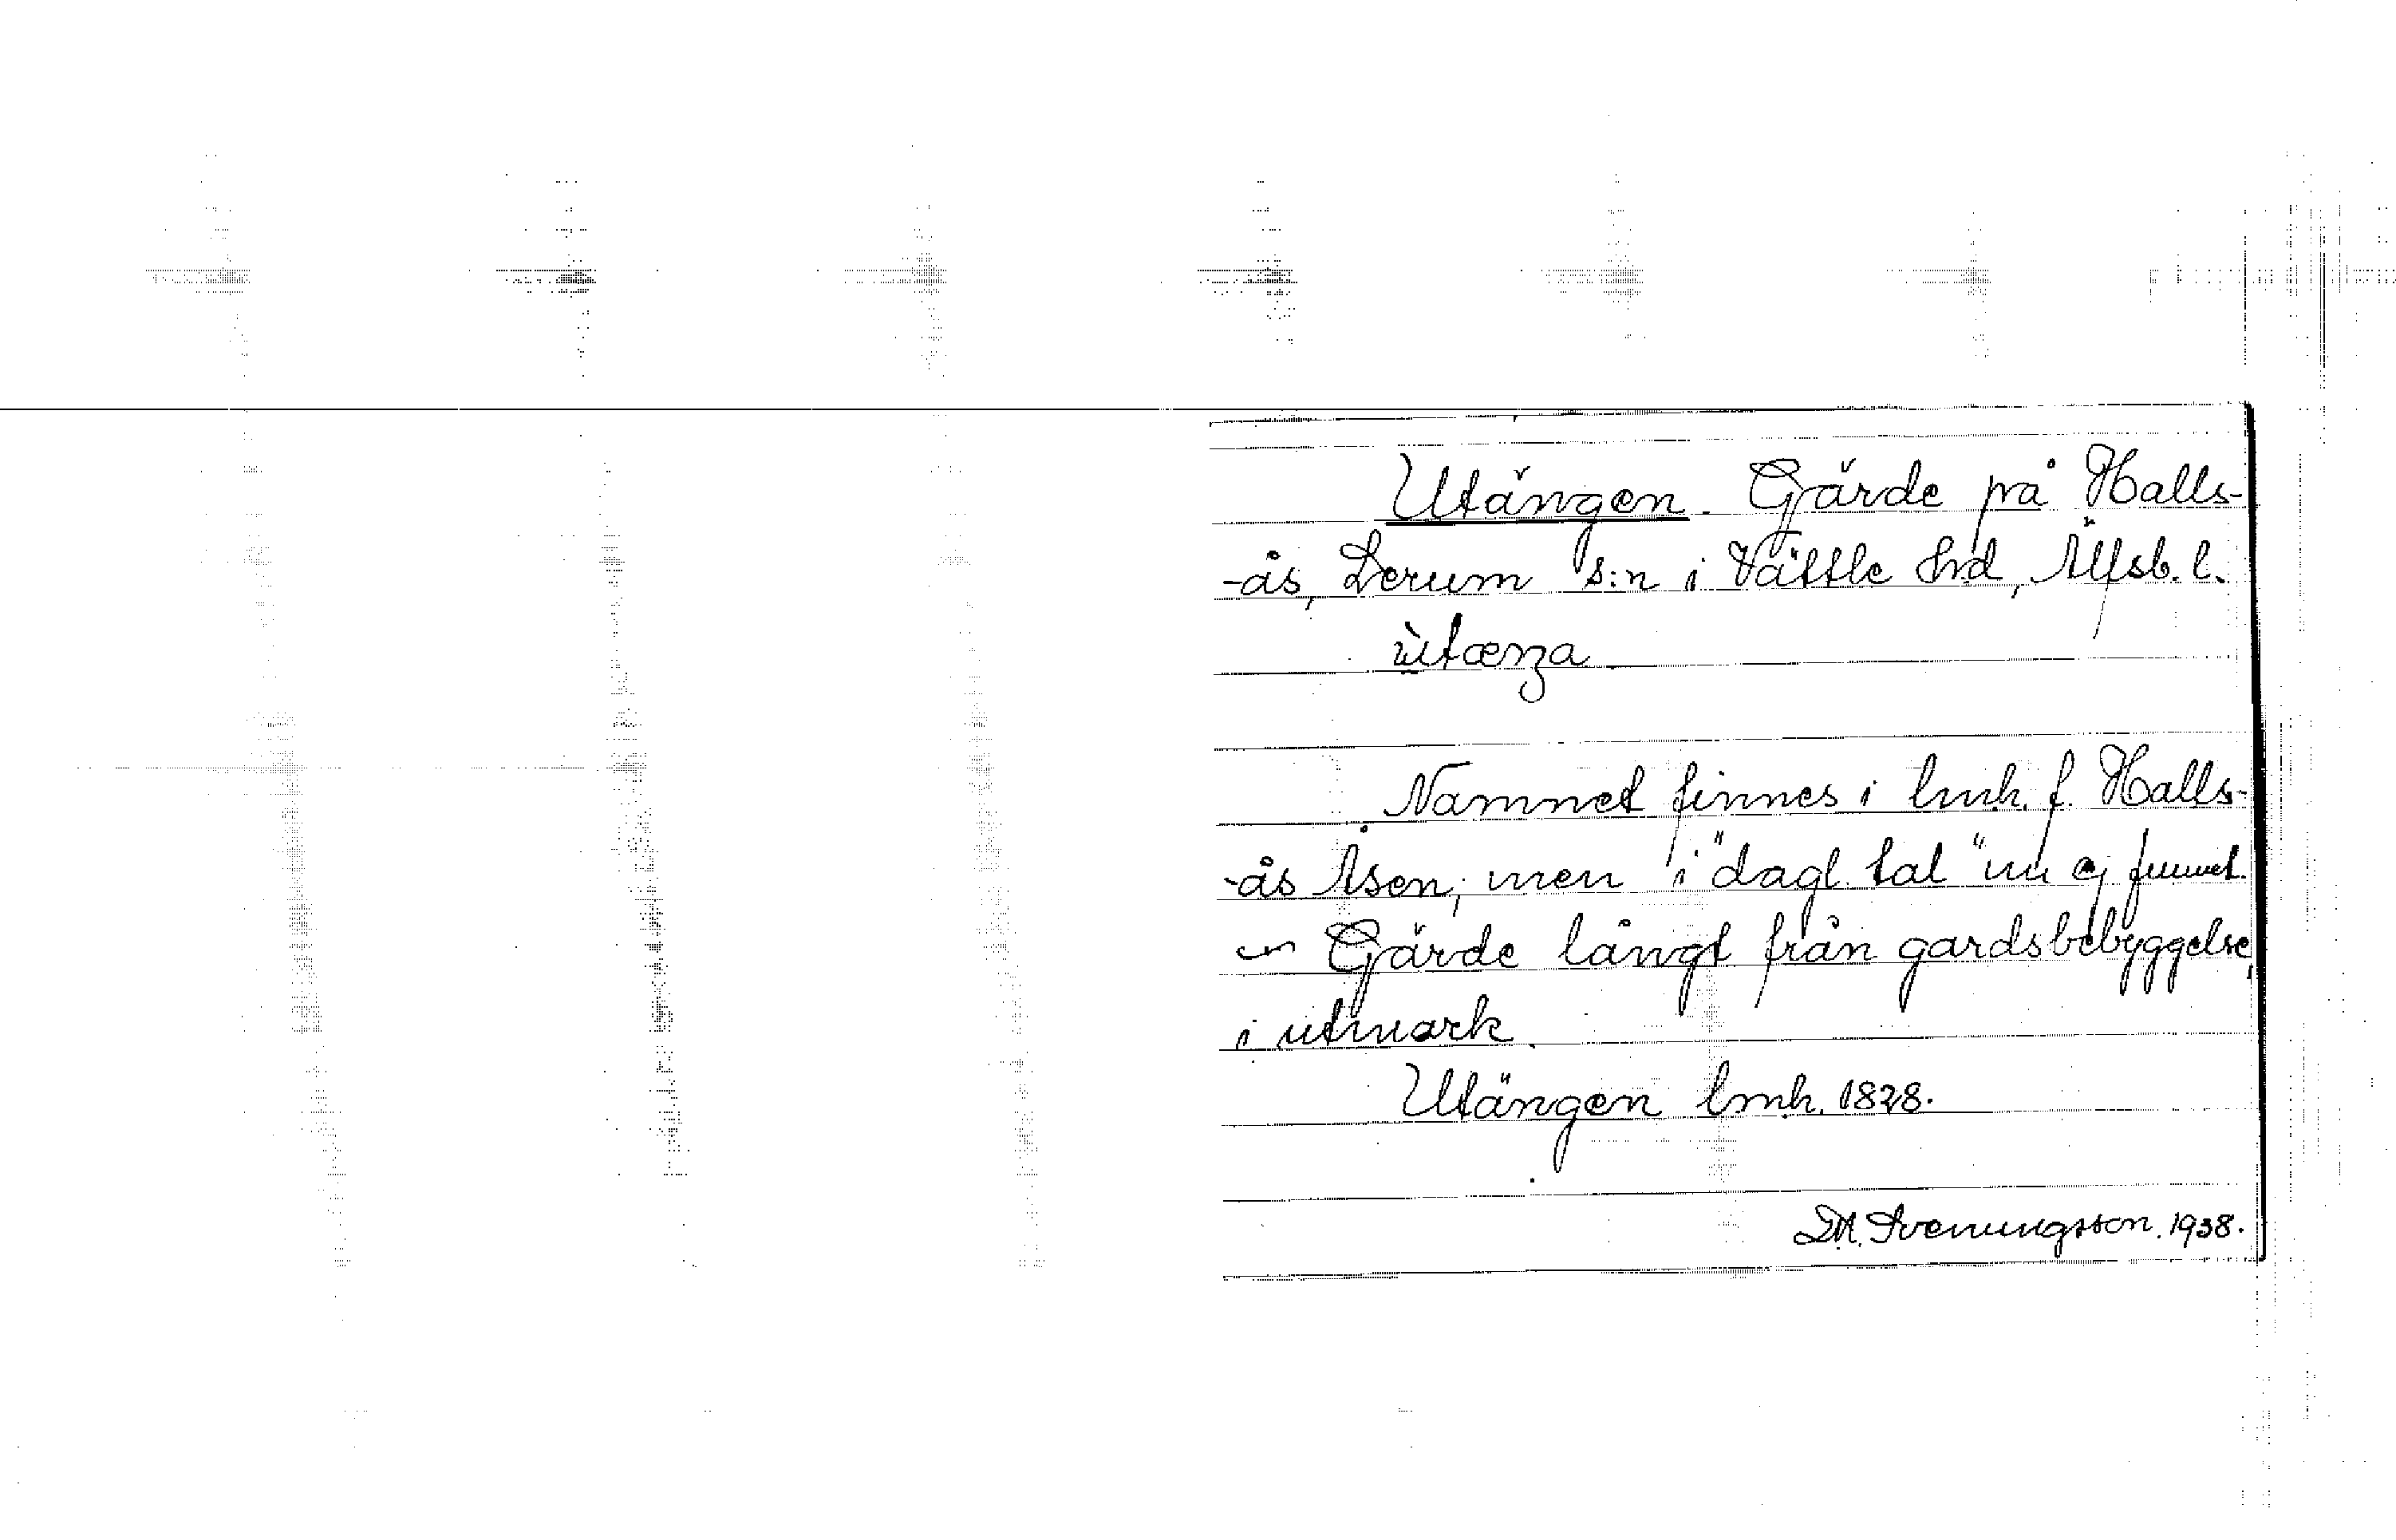 Utängen. Gärde på Halls-
-ås, Lerum s:n i Vättle hrd, Älfsb. l.
ùtænga
Namnet finnes i lmh. f. Halls-
-ås Åsen, men i "dagl. tal" nu ej funnet.
~ Gärde långt från gardsbebyggelse,
i utmark.
Utängen lmh. 1828.
D.A. Svenningsson. 1938.